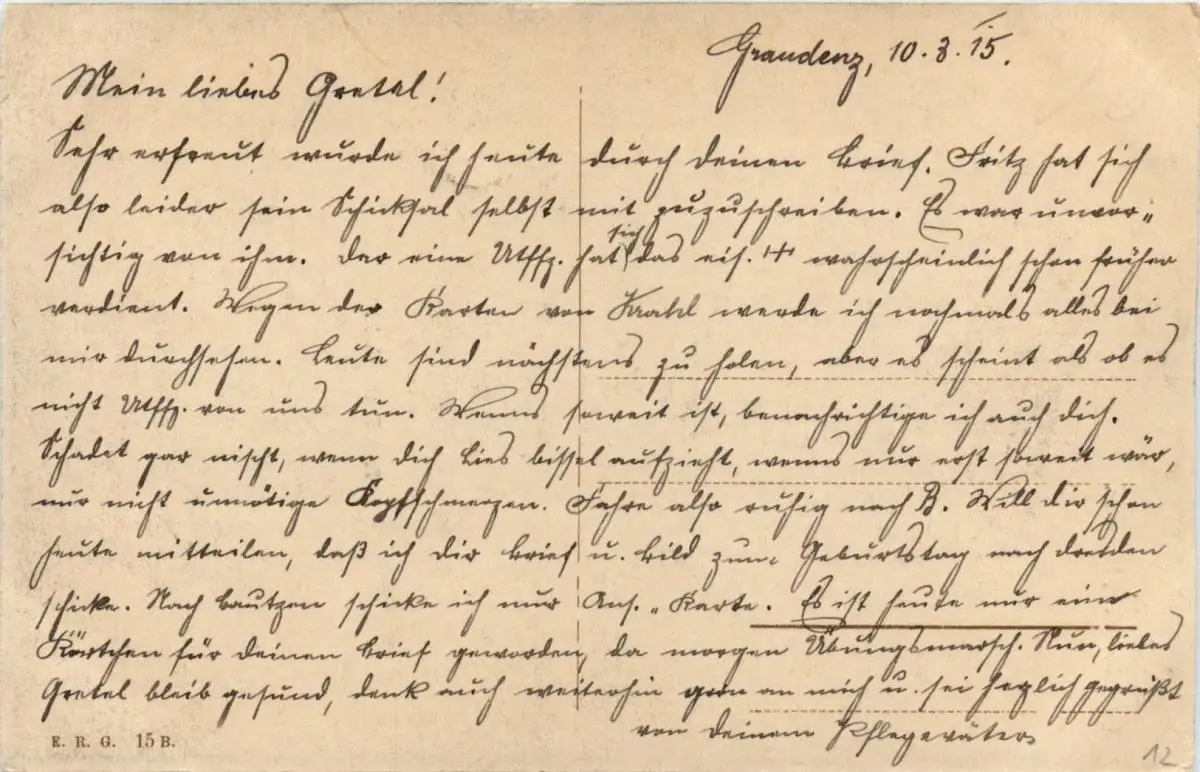 Graudenz, 10.3.15.
Mein liebes Gretel!
Sehr erfreut wurde ich heute durch deinen Brief. Fritz hat sich
also leider sein Schicksal selbst mit zuzuschreiben. Es war unvor-
sichtig von ihm. Der eine Utffz. hat sich das eis. + wahrscheinlich schon früher
verdient. Wegen der Karten von werde ich nochmals alles bei
mir durchsehen. Leute sind nächstens zu holen, aber es scheint als ob es
nicht Utffz. von uns tun. Wenns soweit ist, benachrichtige ich auch dich.
Schadet gar nischt, wenn dich Lies bissel aufzieht, wenns nur erst soweit wär,
nur nicht unnötige Kopfschmerzen. Fahre also ruhig nach B. Will dir schon
heute mitteilen, daß ich dir Brief u. Bild zum Geburtstag nach Dresden
schicke. Nach Bautzen schicke ich nur Ans.-Karte. Es ist heute nur ein
Kärtchen für deinen Brief geworden, da morgen Übungsmarsch. Nun, liebes
Gretel bleib gesund, denk auch weiterhin gern an mich u. sei herzlich gegrüßt
von deinem Pflegevater
E. R. G. 15 B.
12